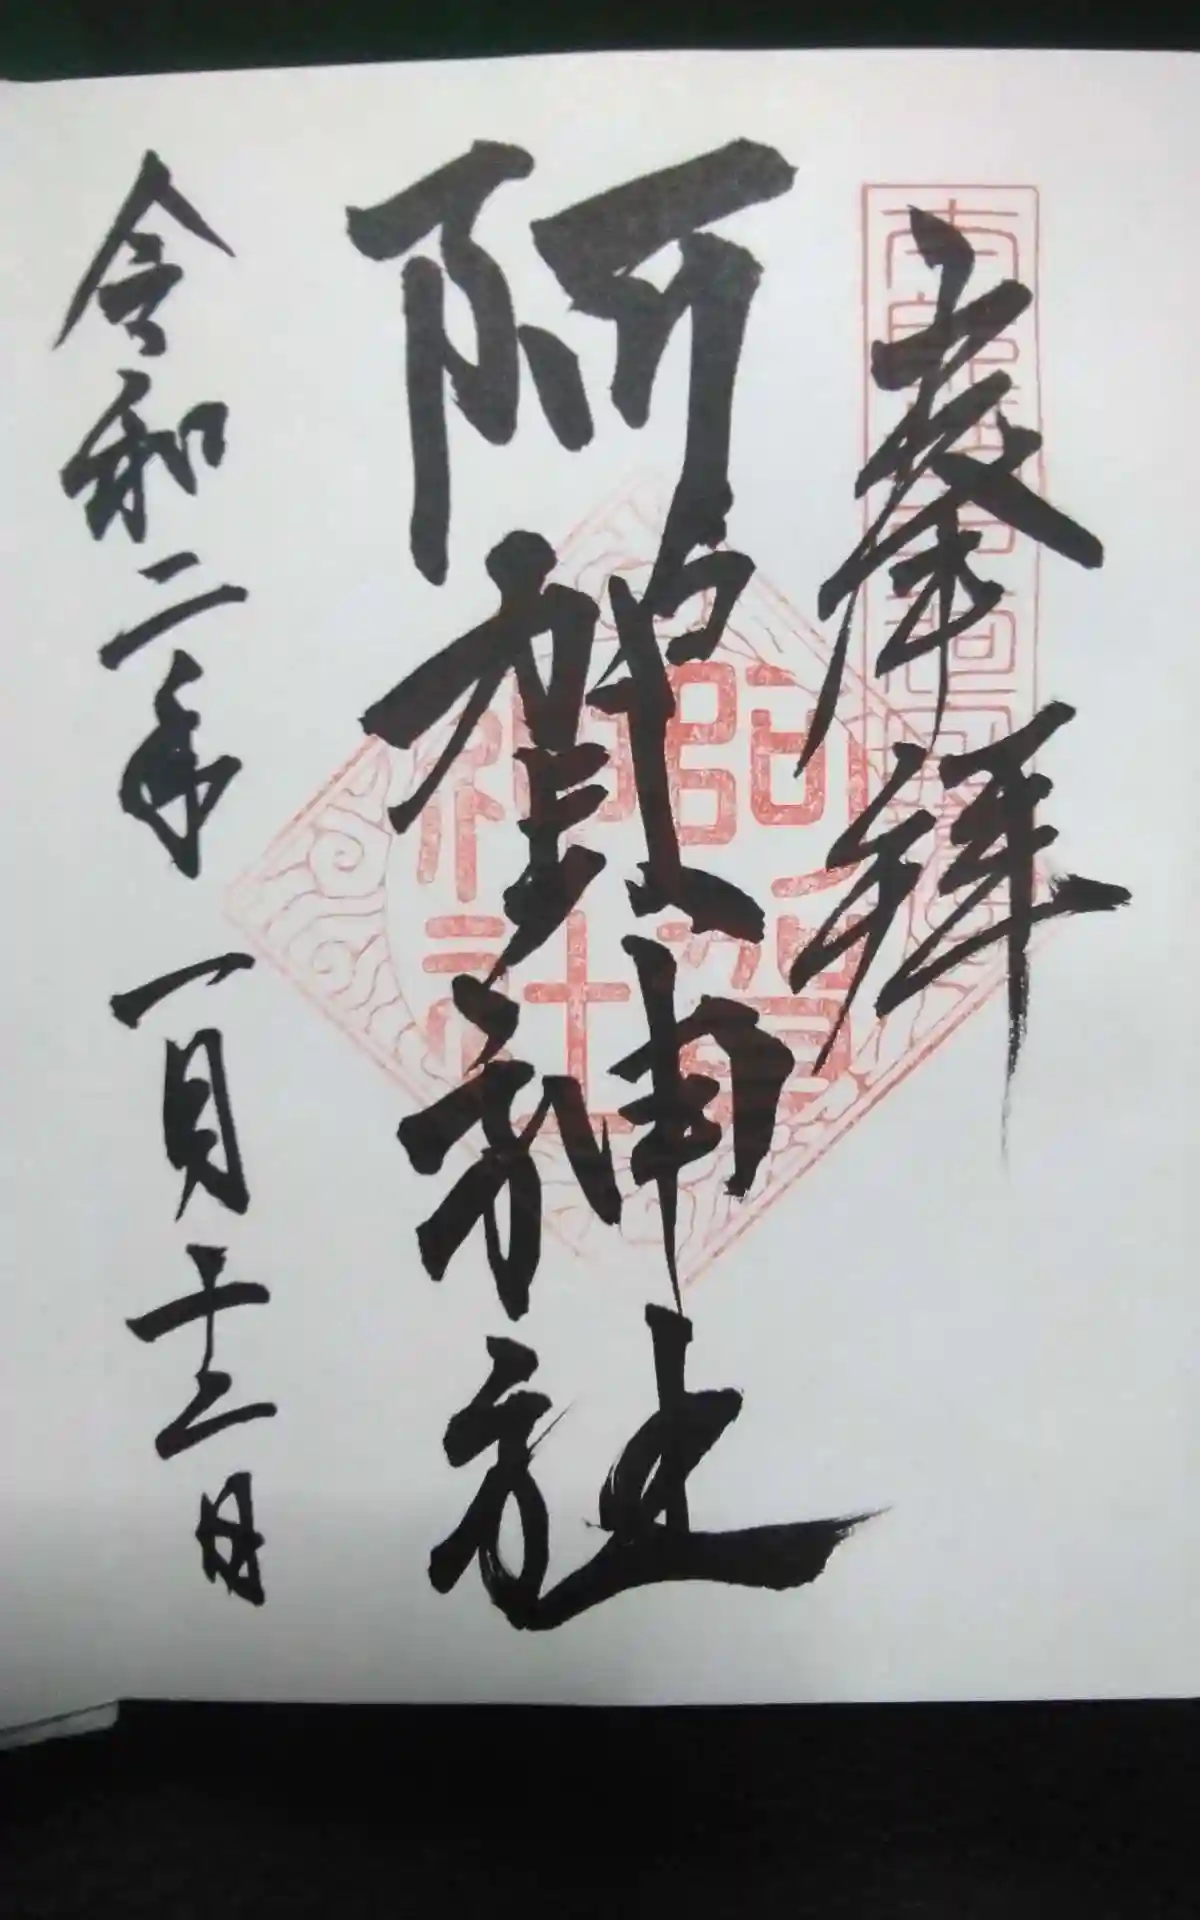 奉拝
阿賀神社
阿賀神社
令和二年一月十二日